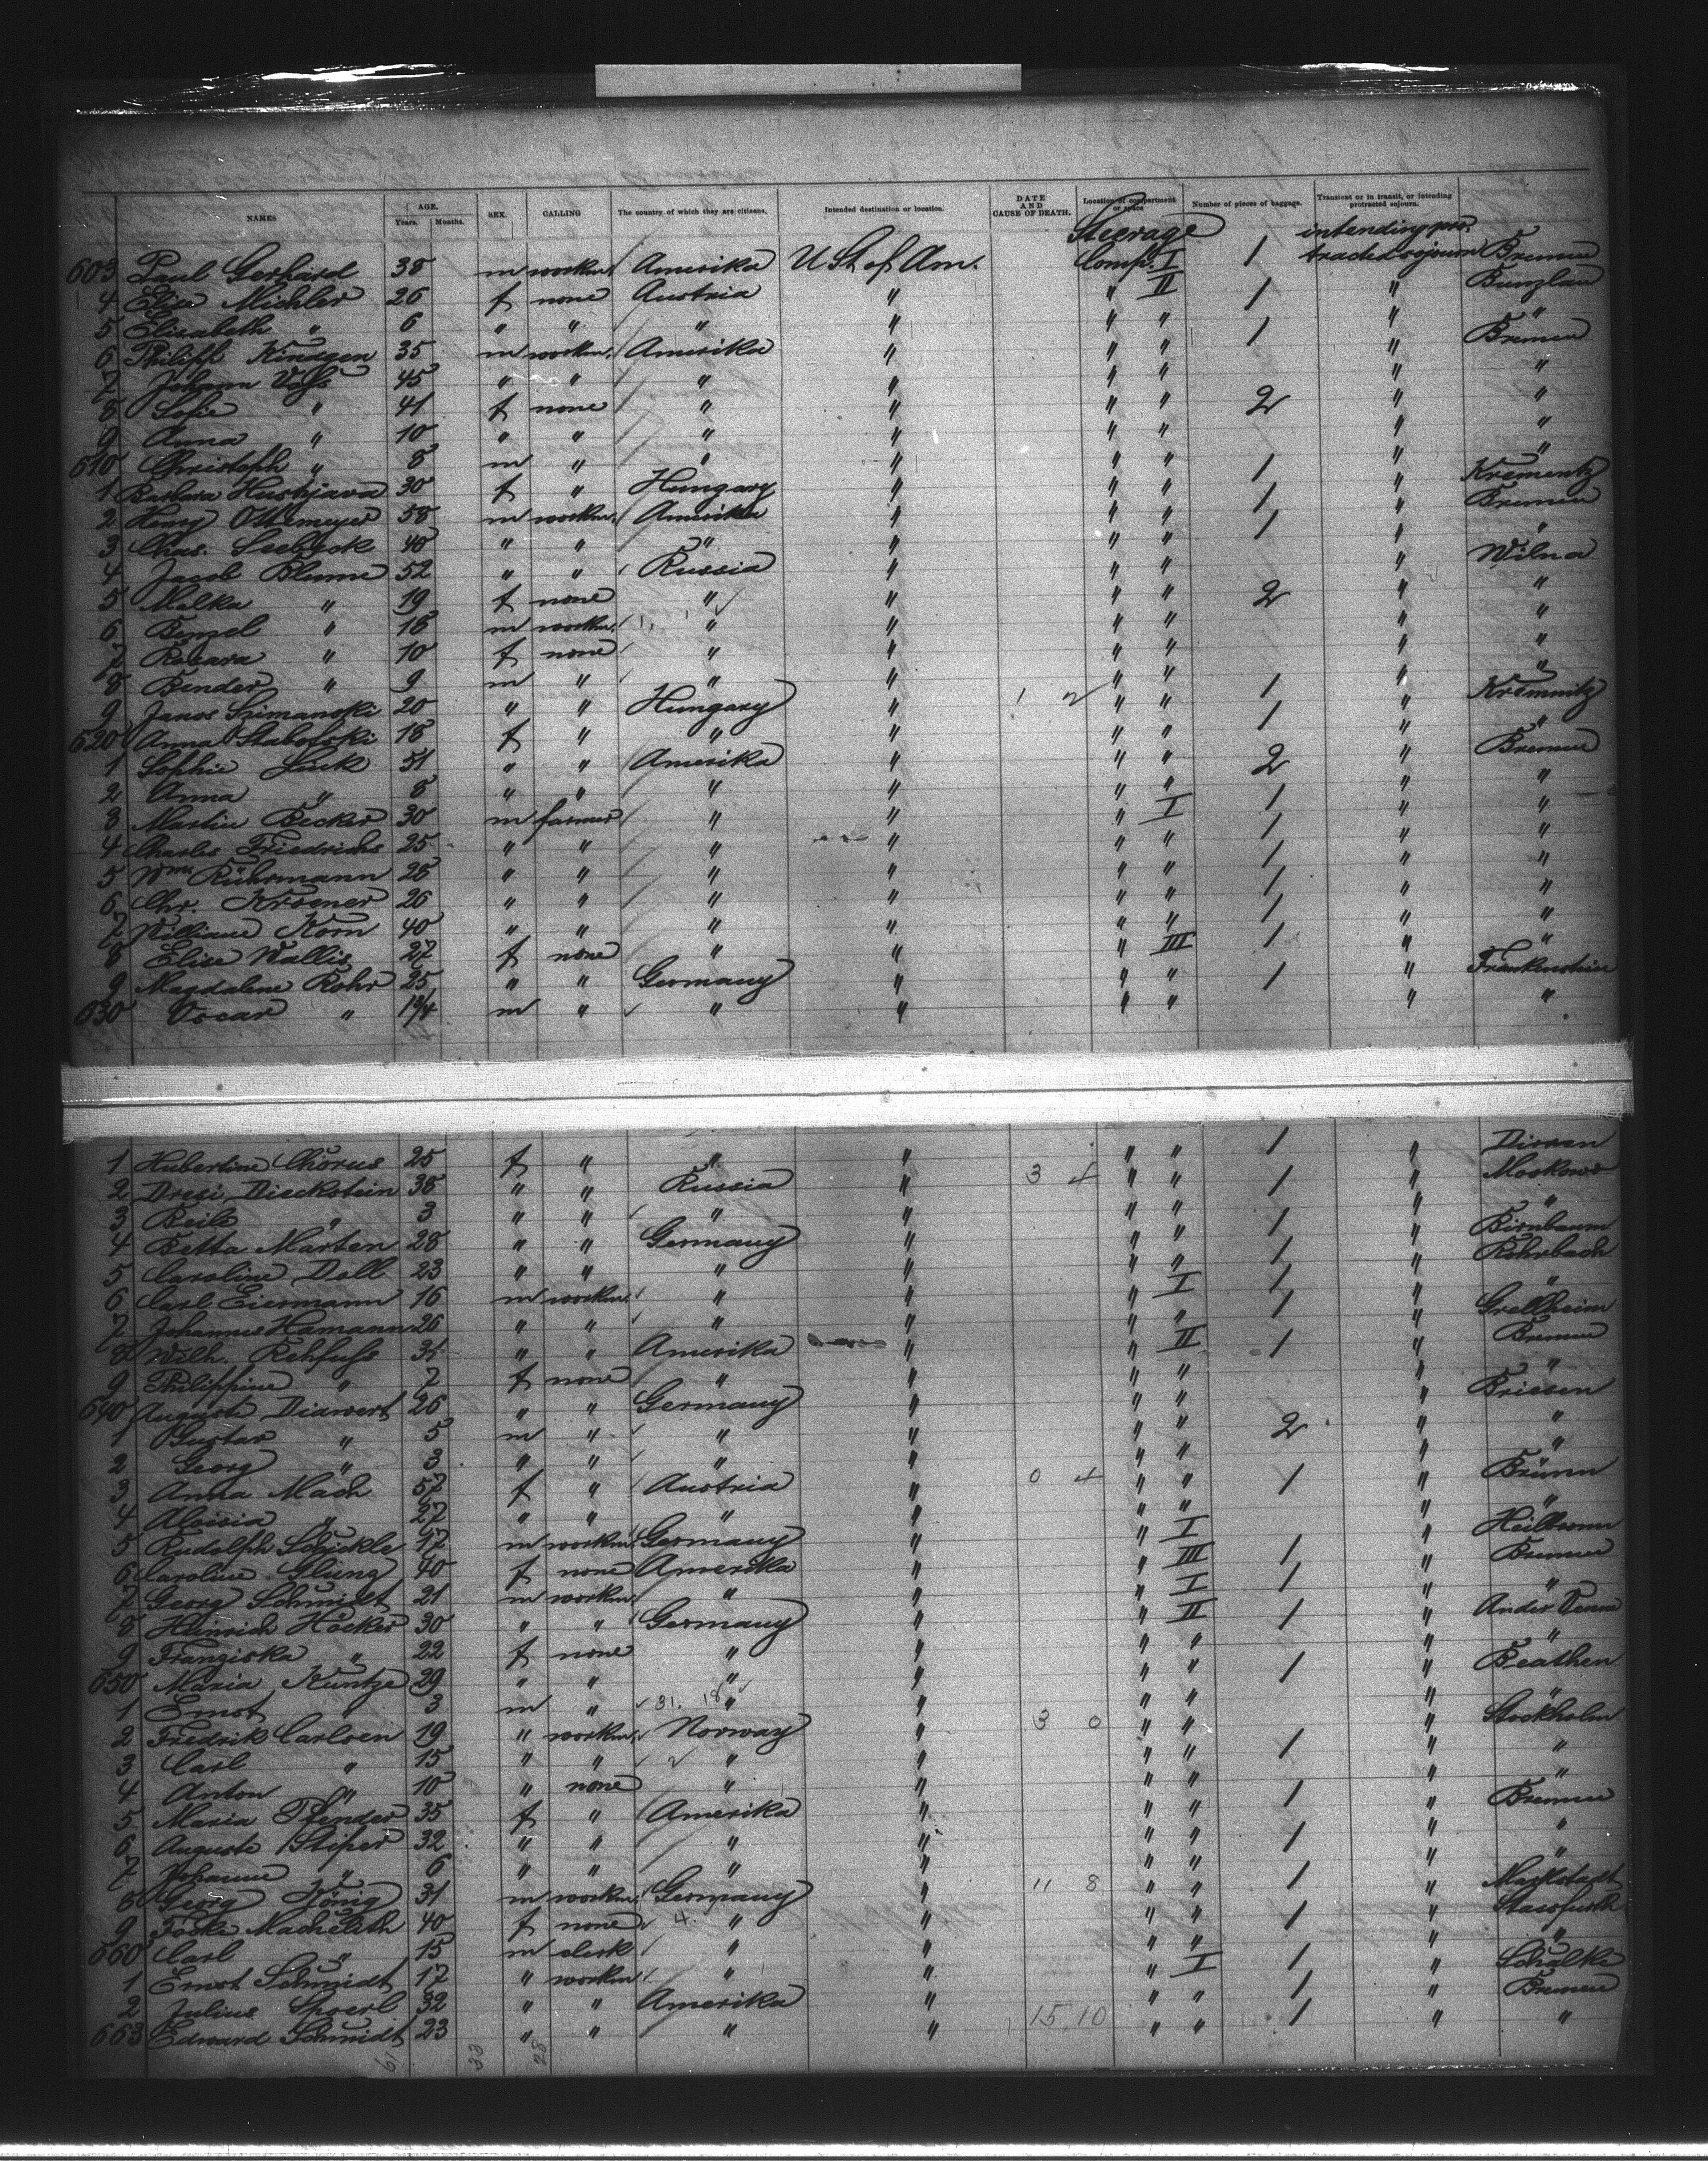 NAMES AGE. Years. Months. SEX. CALLING The country of which they are citizens. Intended destination or location. DATE AND CAUSE OF DEATH. Location of compartment or space Number of pieces of baggage. Transient or in transit, or intending protracted sojourn.
Steerage intending pro-
603 Paul Gerhard 38 m workm. Amerika U St. of Am. Comp. I 1 tracted sojourn Bremen
4 Elise Michler 26 f none Austria " " II 1 " Bunzlau
5 Elisabeth " 6 " " " " " " " "
6 Philipp Kindgen 35 m workm. Amerika " " " 1 " Bremen
7 Johann Voss 45 " " " " " " " "
8 Sofie " 41 f none " " " " 2 " "
9 Anna " 10 " " " " " " " "
610 Christoph " 8 m " " " " " " "
1 Barbara Hushjava 30 f " Hungary " " " 1 " Krementz
2 Henry Ottemeyer 58 m workm. Amerika " " " 1 " Bremen
3 Chas. Seebeck 40 " " " " " " 1 " "
4 Jacob Blume 52 " " Russia " " " " Wilna
5 Malka " 19 f none " " " " 2 " "
6 Benzel " 18 m workm. " " " " " "
7 Rocara " 10 f none " " " " " "
8 Bender " 9 m " " " " " " "
9 Janos Szimanski 20 " " Hungary " 1 2 " " 1 " Kremnitz
620 Anna Stabofski 18 f " " " " " 1 " "
1 Sophie Link 51 " " Amerika " " " 2 " Bremen
2 Anna " 8 " " " " " " " "
3 Martin Becker 30 m farmer " " " I 1 " "
4 Charles Friedrichs 25 " " " " " " 1 " "
5 Wm. Rührmann 28 " " " " " " 1 " "
6 Chr. Kroener 26 " " " " " " 1 " "
7 William Korn 40 " " " " " " 1 " "
8 Elise Wallis 27 f none " " " III 1 " "
9 Magdalene Rohr 25 " " Germany " " " 1 " Frankenstein
630 Oscar " 1 3/4 m " " " " " " "
1 Hubertine Chorus 25 f " " " " " 1 "
2 Dresi Dieckstein 38 " " Russia " 3 4 " " 1 " Moskowo
3 Beile " 3 " " " " " " " "
4 Betta Marten 28 " " Germany " " " 1 " Birnbaum
5 Caroline Doll 23 " " " " " " 1 " Rohrbach
6 Carl Eiermann 16 m workm. " " " I 1 " "
7 Johannes Hamann 26 " " " " " " 1 "
8 Wilh. Rehfuss 31 " " Amerika " " II 1 " Bremen
9 Philippine " 7 f none " " " " " "
640 Auguste Diawert 26 " " Germany " " " " Briesen
1 Gustav " 5 m " " " " " 2 " "
2 Georg " 3 " " " " " " " "
3 Anna Mach 57 f " Austria " 0 4 " " 1 " Brünn
4 Aloisia " 27 " " " " " " " "
5 Rudolph 17 m workm. Germany " " I 1 " Heilbronn
6 Caroline Glung 40 f none Amerika " " III 1 " Bremen
7 Georg Schmidt 21 m workm. " " " I 1 " "
8 Heinrich Höcker 30 " " Germany " " II 1 "
9 Franziska " 22 f none " " " " " "
650 Maria Kuntze 29 " " " " " " 1 " Beathen
1 Ernst " 3 m " 31. 18 " " " " " "
2 Fredrik Carlsen 19 " workm. Norway " 3 0 " " 1 " Stockholm
3 Carl " 15 " " 2 " " " " " "
4 Anton " 10 " none " " " " " "
5 Maria Pfender 35 f " Amerika " " " 1 " Bremen
6 Auguste Stiper 32 " " " " " " 1 " "
7 Johanne " 6 " " " " " " " "
8 Georg König 31 m workm. Germany " 11 8 " " 1 " Markstadt
9 Föcke 40 f none 4. " " " " 1 " Stassfurth
660 Carl " 15 m clerk " " " " " "
1 Ernst Schmidt 17 " workm. " " " I 1 " Schalke
2 Julius Spoerl 32 " " Amerika " " " 1 " Bremen
663 Edward Schmidt 23 " " " " 15.10 " " 1 " "
61 33 28